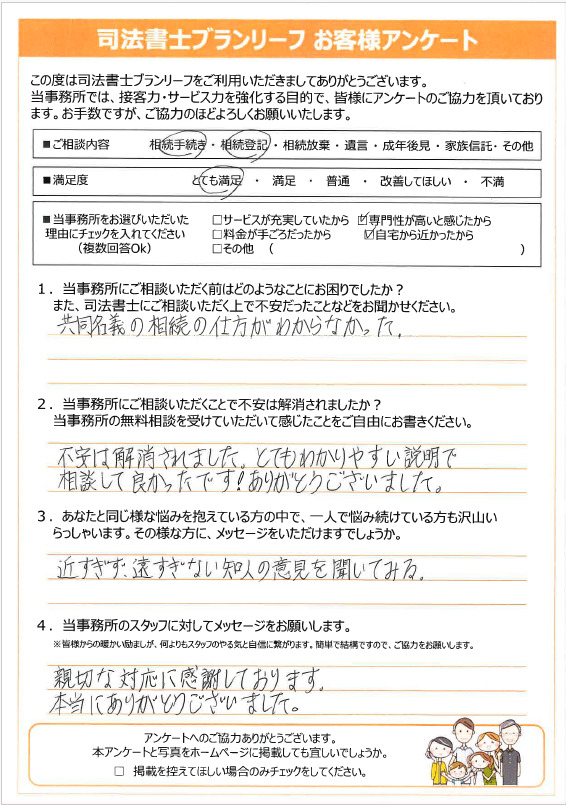 司法書士ブランリーフ お客様アンケート
この度は司法書士ブランリーフをご利用いただきましてありがとうございます。
当事務所では、接客力・サービス力を強化する目的で、皆様にアンケートのご協力を頂いており
ます。お手数ですが、ご協力のほどよろしくお願いいたします。
■ご相談内容 相続手続き・相続登記・相続放棄・遺言・成年後見・家族信託・その他
■満足度 とても満足 ・ 満足 ・ 普通 ・ 改善してほしい ・ 不満
■当事務所をお選びいただいた □サービスが充実していたから ☑専門性が高いと感じたから
理由にチェックを入れてください □料金が手ごろだったから ☑自宅から近かったから
（複数回答Ok） □その他 （ ）
１．当事務所にご相談いただく前はどのようなことにお困りでしたか？
また、司法書士にご相談いただく上で不安だったことなどをお聞かせください。
共同名義の相続の仕方がわからなかった。
２．当事務所にご相談いただくことで不安は解消されましたか？
当事務所の無料相談を受けていただいて感じたことをご自由にお書きください。
不安は解消されました。とてもわかりやすい説明で
相談して良かったです！ありがとうございました。
３．あなたと同じ様な悩みを抱えている方の中で、一人で悩み続けている方も沢山い
らっしゃいます。その様な方に、メッセージをいただけますでしょうか。
近すぎず、遠すぎない知人の意見を聞いてみる。
４．当事務所のスタッフに対してメッセージをお願いします。
※皆様からの暖かい励ましが、何よりもスタッフのやる気と自信に繋がります。簡単で結構ですので、ご協力をお願いします。
親切な対応に感謝しております。
本当にありがとうございました。
アンケートへのご協力ありがとうございます。
本アンケートと写真をホームページに掲載しても宜しいでしょうか。
□ 掲載を控えてほしい場合のみチェックをしてください。